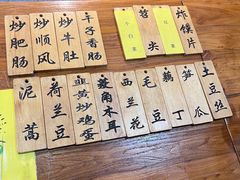 炒肥肠
炒顺风
炒牛肚
年子香肠
小白菜
苕尖
炸馍片
泥蒿
荷兰豆
韭黄炒鸡蛋
菱角木耳
西兰花
毛豆
藕丁
笋瓜
土豆丝